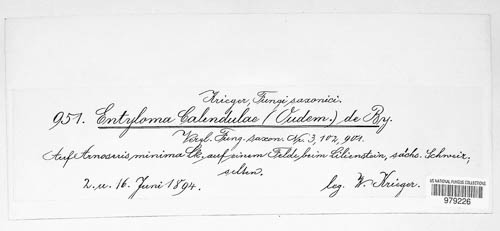 Krieger, Fungi saxonici.
951. Entyloma Calendulae (Oudem.) de By.
Vergl. Fung. saxon. Nr. 3, 102, 901.
Auf Arnoseris minima Lk, auf einem Felde beim Lilienstein, sächs. Schweiz,
selten.
2. u. 16. Juni 1894. leg. W. Krieger.
US NATIONAL FUNGUS COLLECTIONS
979226